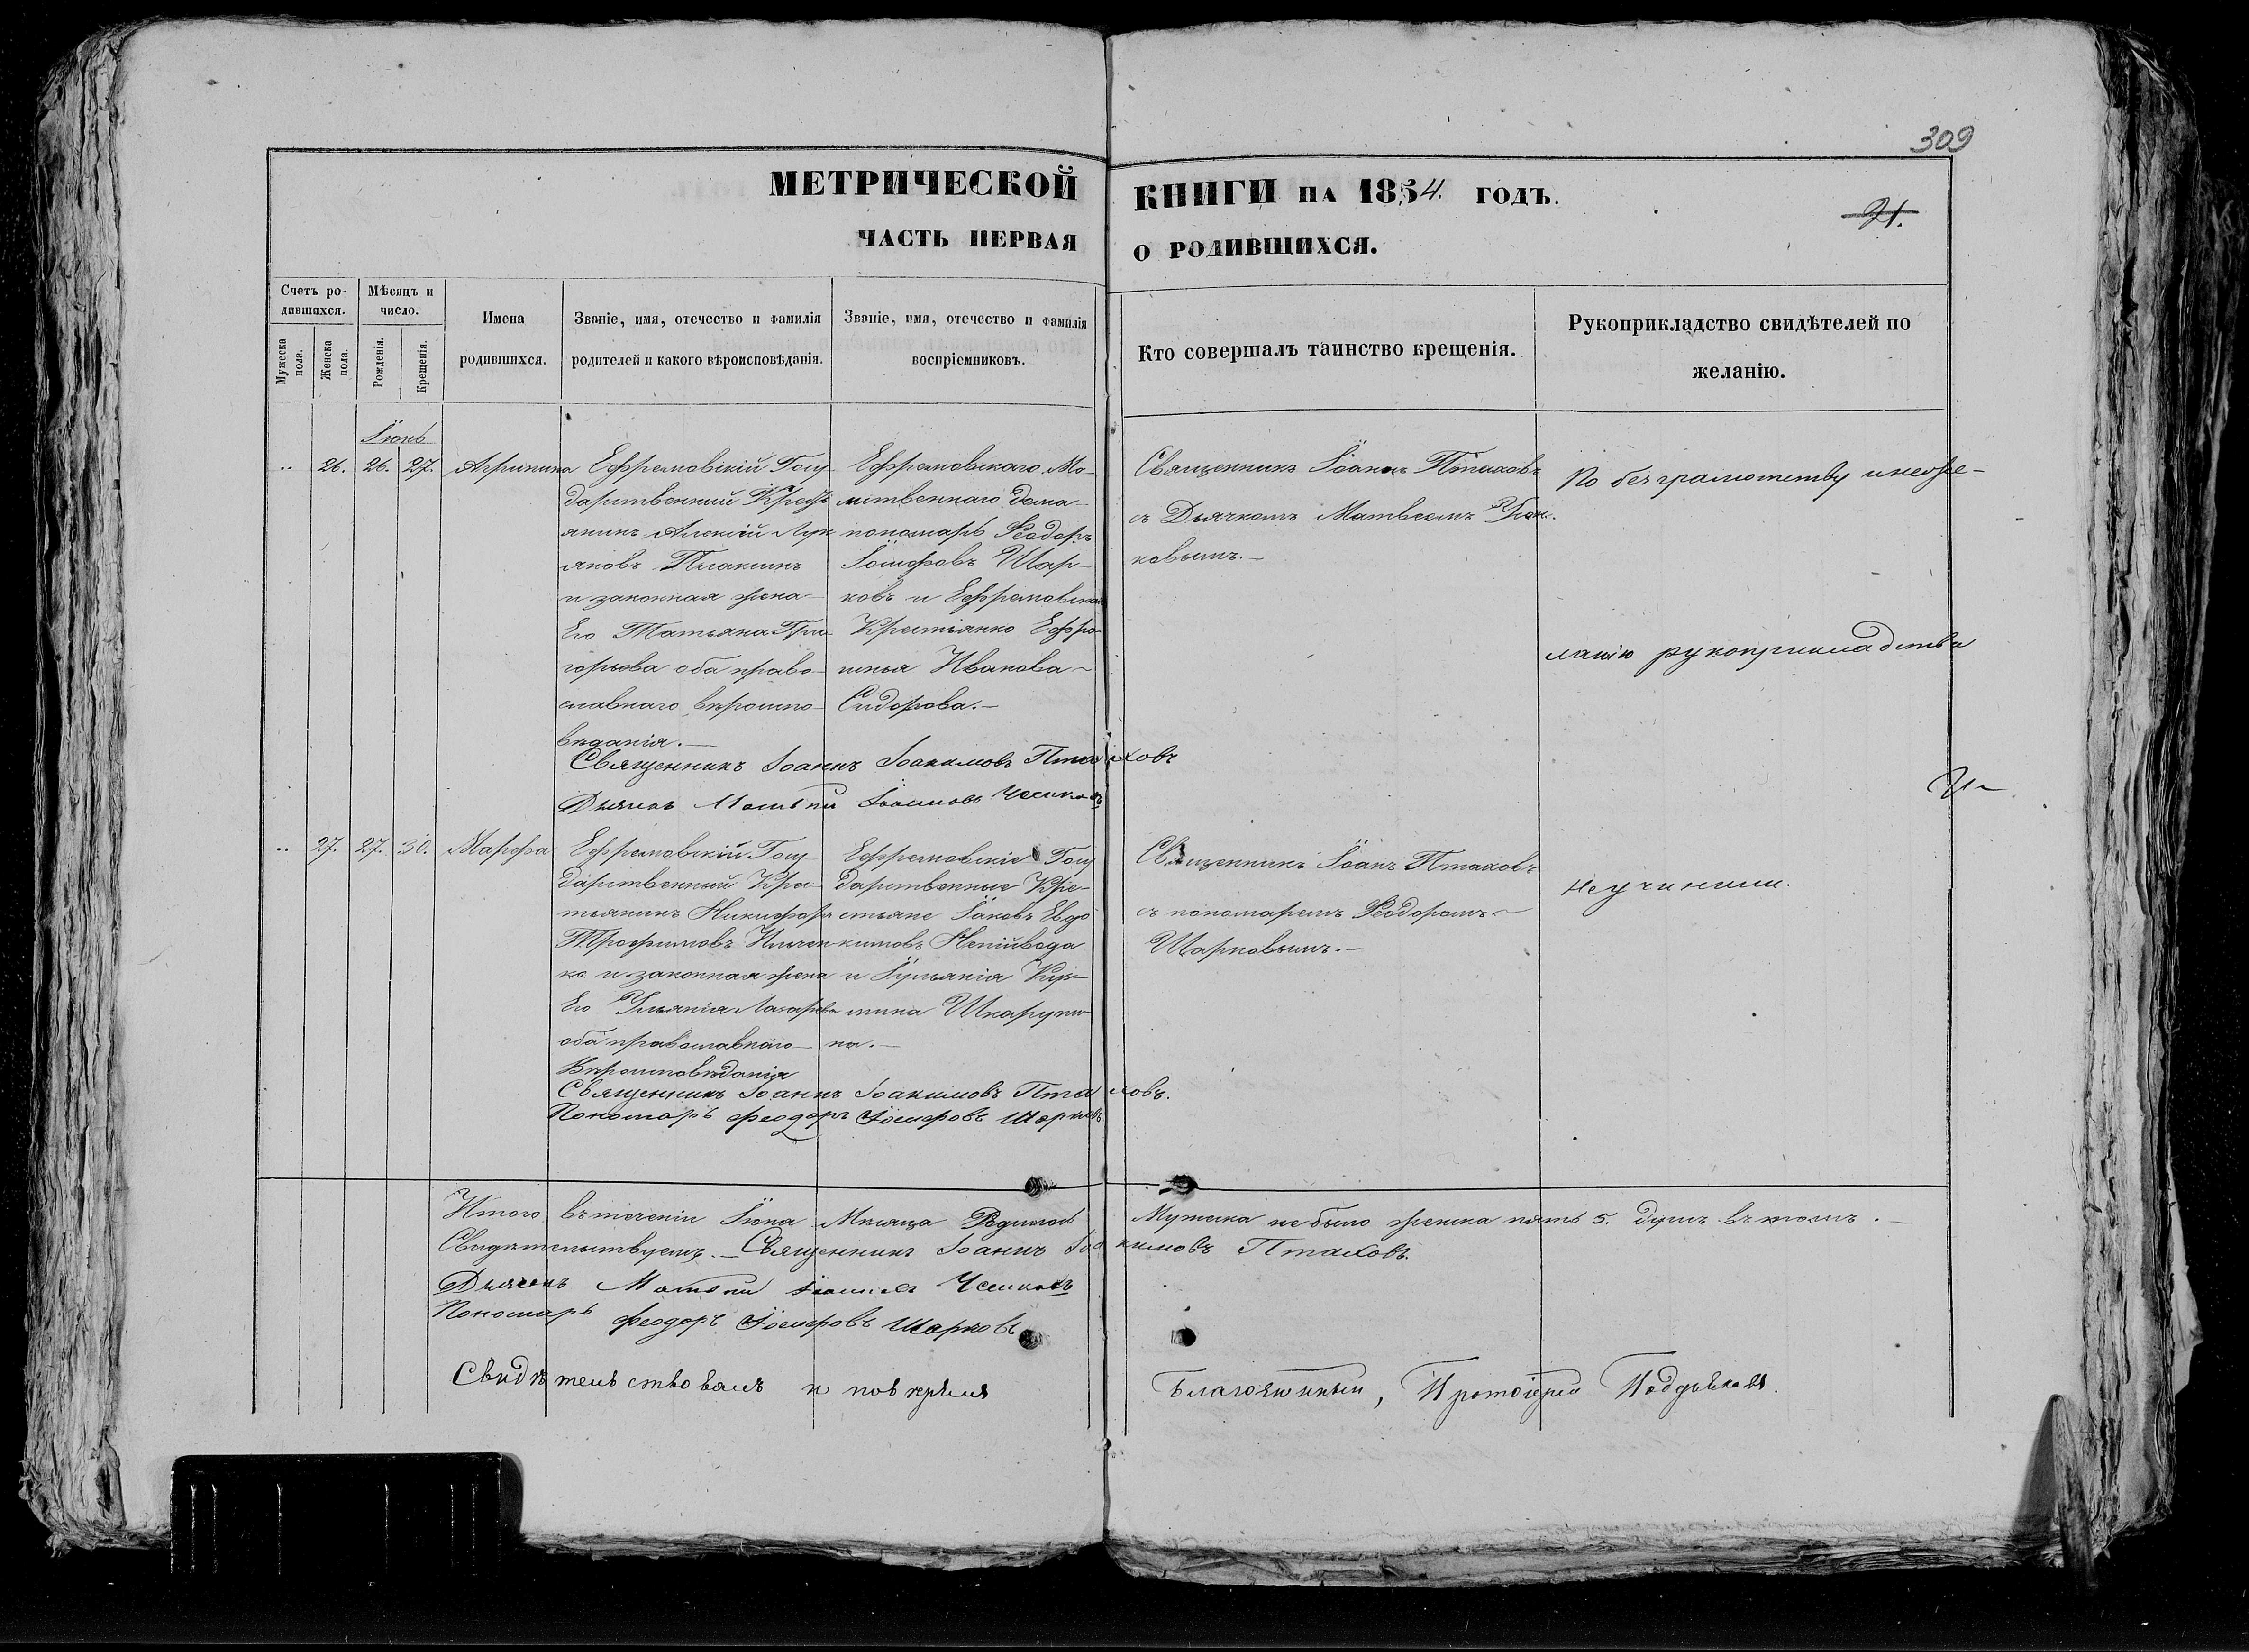 309
МЕТРИЧЕСКОЙ КНИГИ НА 1854. ГОДЪ.
21.
ЧАСТЬ ПЕРВАЯ О РОДИВШИХСЯ.
Счетъ ро-
дившихся.
Мужеска пола.
Женска пола.
Мѣсяцъ и
число.
Рожденія.
Крещенія.
Имена
родившихся.
Званіе, имя, отечество и фамилія
родителей и какого вѣроисповѣданія.
Званіе, имя, отечество и фамилія
воспріемниковъ.
Кто совершалъ таинство крещенія.
Рукоприкладство свидѣтелей по
желанію.
Іюнь
26. 26. 27. Агрипина
Ефремовскій Госу-
дарственный Крест
янинъ Алексій Лук
яновъ Плакинъ
и законная жена
Его Татьяна Гри-
горьова оба право-
славнаго вѣроиспо-
вѣданія.
Ефремовскаго Мо-
литвеннаго дома
пономарь Феодоръ
Іосифовъ Шар-
ковъ и Ефремовская
Крестіянко Ефро-
синья Иванова
Сидорова.
Священникъ Іоаннъ Птаховъ
съ Дьячкомъ Матвеемъ
ковымъ.
По безграмотству и неже-
ланію рукоприкладства
Священникъ Іоаннъ Іоакимовъ Птаховъ
Дьячокъ
27. 27. 30. Марфа
Ефремовскій Госу
дарственный Крес
тьянинъ Никифоръ
Трофимовъ Ильчен
ко и законная жена
Его Ульянія Лазарева
оба православнаго
Вѣроисповѣданія
Ефремовскіе Госу
дарственные Кре-
стьяне Іаковъ Евдо
кимовъ Непійвода
и Іульянія Кузь-
мина Шкарупи-
на.
Священникъ Іоанъ Птаховъ
съ пономаремъ Феодоромъ
Шарковымъ.
неучинили.
Священникъ Іоаннъ Іоакимовъ Птаховъ.
Пономарь Феодоръ Іосифовъ Шарковъ
Итого въ теченіи Іюня Мѣсяца Родилось Мужска не было женска пять 5. душъ въ томъ.
Свидѣтельствуемъ. Священникъ Іоаннъ Іоакимовъ Птаховъ.
Дьячекъ
Пономарь Феодоръ Іосифовъ Шарковъ
Свидѣтельствовалъ и повѣрялъ Благочинный, Протоіерей Поддьяковъ.